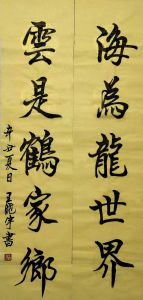 海為龍世界
雲是鶴家鄉
辛丑夏日
書